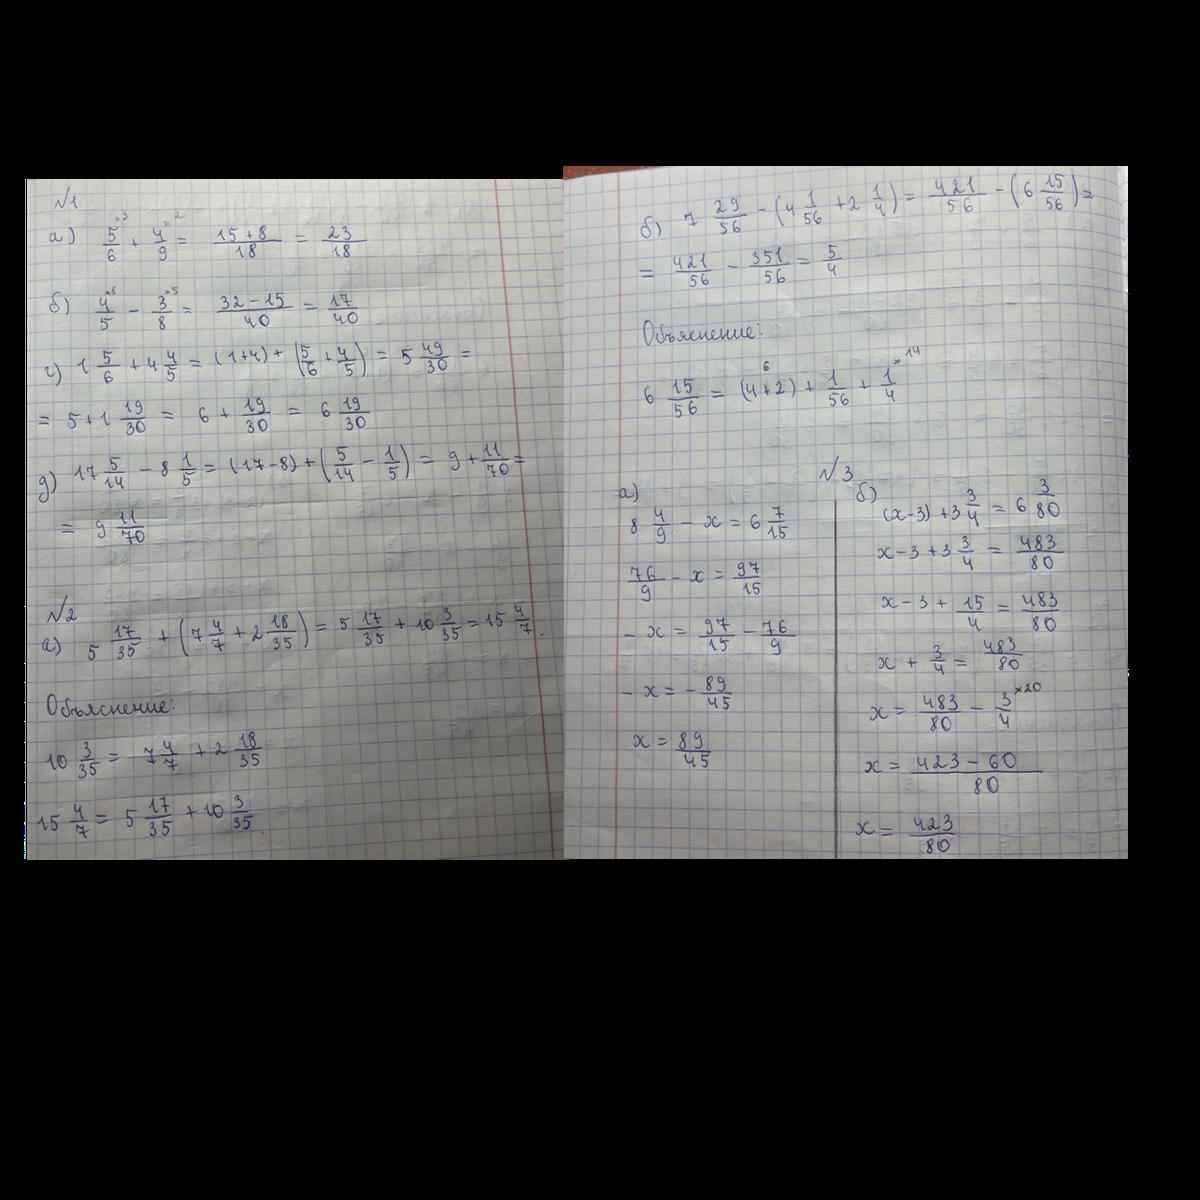 №1
а) 5/6 ×3 + 4/9 ×2 = (15+8)/18 = 23/18
б) 4/5 ×8 − 3/8 ×5 = (32−15)/40 = 17/40
г) 1 5/6 + 4 4/5 = (1+4) + (5/6 + 4/5) = 5 49/30 =
= 5+1 19/30 = 6 + 19/30 = 6 19/30
д) 17 5/14 − 8 1/5 = (17−8) + (5/14 − 1/5) = 9 + 11/70 =
= 9 11/70
№2
а) 5 17/35 + (7 4/7 + 2 18/35) = 5 17/35 + 10 3/35 = 15 4/7.
Объяснение:
10 3/35 = 7 4/7 + 2 18/35
15 4/7 = 5 17/35 + 10 3/35.
б) 7 29/56 − (4 1/56 + 2 1/4) = 421/56 − (6 15/56) =
= 421/56 − 351/56 = 5/4
Объяснение:
6
6 15/56 = (4+2) + 1/56 + 1/4 ×14
№3
а)
8 4/9 − x = 6 7/15
76/9 − x = 97/15
− x = 97/15 − 76/9
− x = − 89/45
x = 89/45
б)
(x−3) + 3 3/4 = 6 3/80
x−3 + 3 3/4 = 483/80
x−3 + 15/4 = 483/80
x + 3/4 = 483/80
x = 483/80 − 3/4 ×20
x = (423−60)/80
x = 423/80